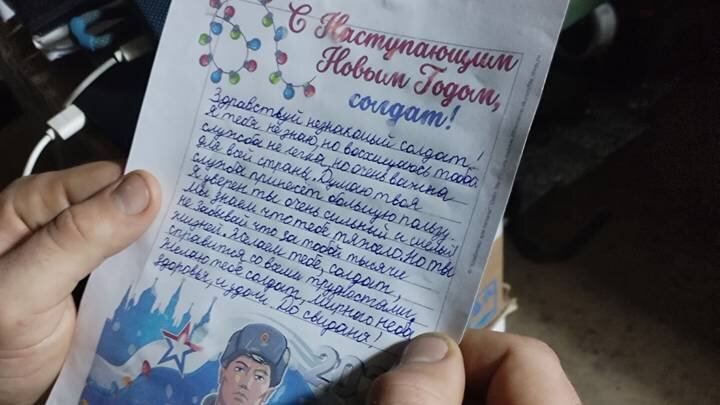 С Наступающим
Новым Годом,
солдат!
Здравствуй незнакомый солдат!
Я тебя не знаю, но восхищаюсь тобой
служба не легка, но очень важна
для всей страны. Думаю твоя
служба принесёт большую пользу.
Я уверен ты очень сильный и смелый
Мы знаем что тебе тяжело. Но ты
не забывай что за тобой тысячи
жизней. Желаем тебе, солдат,
справится со всеми трудностями.
Желаю тебе солдат, мирного неба,
здоровья, и удачи. До свидания!